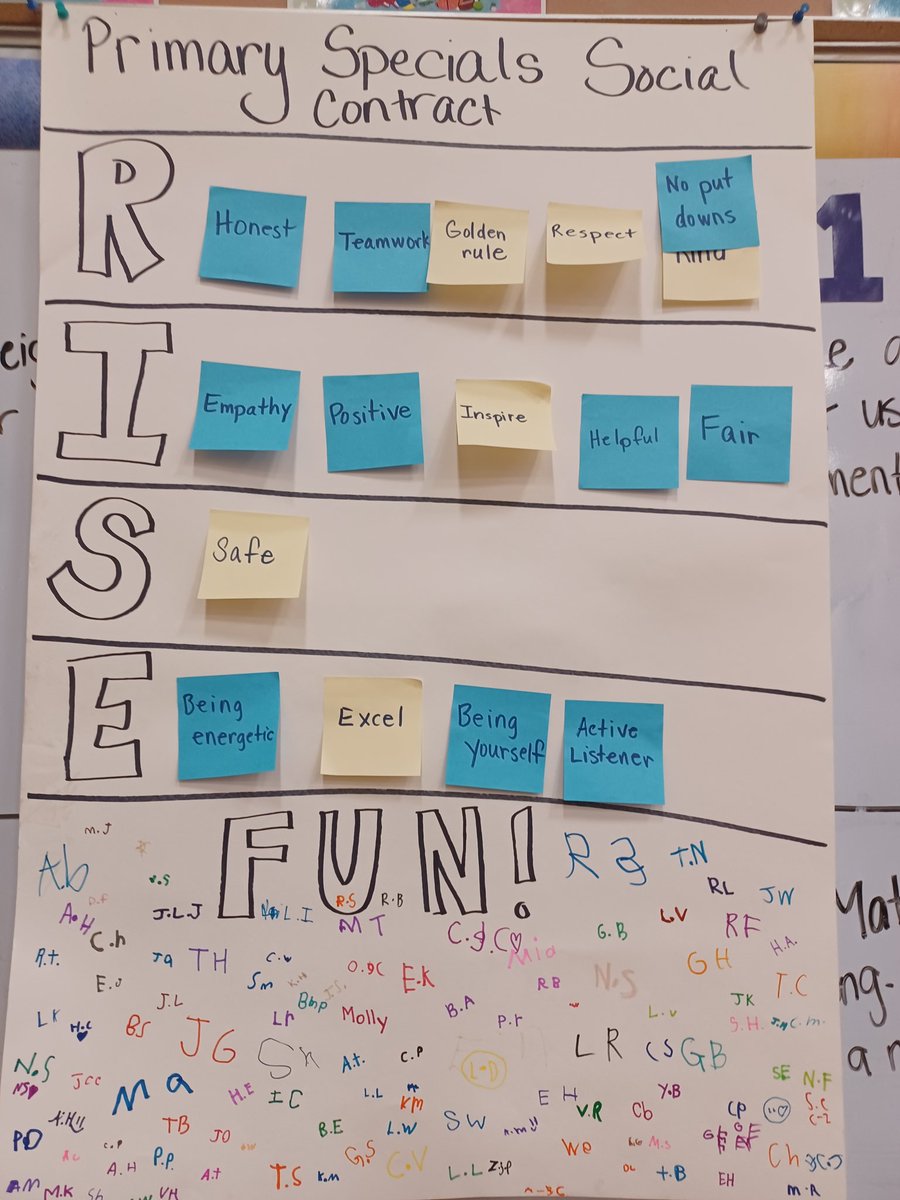 Primary Specials Social
Contract
R
Honest
Teamwork
Golden
rule
Respect
No put
downs
Kind
I
Empathy
Positive
Inspire
Helpful
Fair
S
Safe
E
Being
energetic
Excel
Being
yourself
Active
Listener
FUN!
M.J
A.b
v.S
T.N
RL
JW
A.H
J.L.J
L.I
R.S
R.B
MT
G.B
L.V
RF
H.A.
C.h
R.t.
TH
Mia
GH
T.C
E.J
Sm
O.gC
E.K
RB
N.S
J.L
B.A
JK
Lr
Molly
P.r
L.v
S.H.
BS
JG
LR
CS
GB
N.S
A.t.
C.P
L.D
SE
N.F
Jcc
Ma
H.E
IC
L.L
KM
EH
V.R
Cb
Y.B
CP
PD
TB
JO
B.E
L.W
SW
We
M.S
Ch
A.H
P.P.
A.t
T.S
K.m
G.S
C.V
L.L
t.B
EH
AM
M.K
Sh
VH
M.A